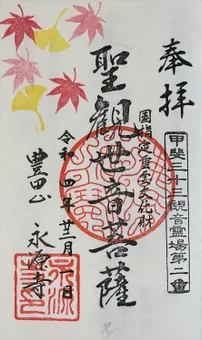 奉拝
甲斐三十三観音霊場第二番
国指定重要文化財
聖観世音菩薩
令和四年廿一月一日
豊田山 永源寺